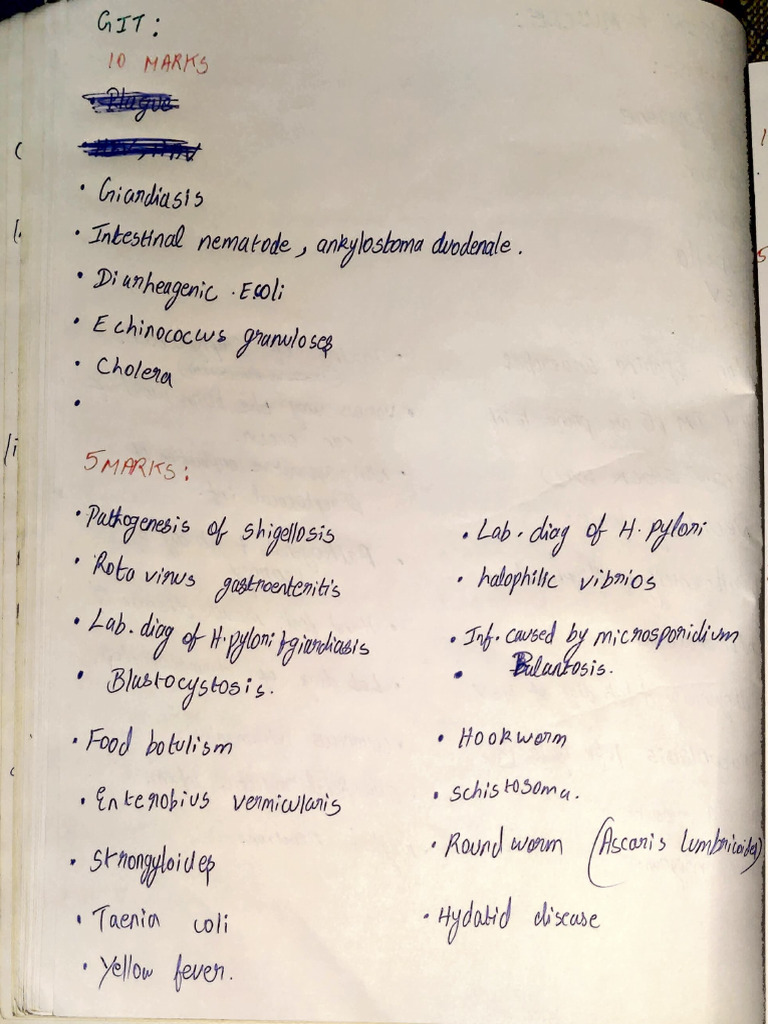 GIT:
10 MARKS
• Plague
• Giardiasis
• Intestinal nematode, ankylostoma duodenale.
• Diarrheagenic . E.coli
• Echinococcus granuloses
• Cholera
•
5 MARKS:
• Pathogenesis of shigellosis
• Roto virus gastroenteritis
• Lab. diag of H. pylori & giardiasis
• Blastocystosis.
• Food botulism
• Enterobius vermicularis
• Strongyloides
• Taenia coli
• Yellow fever.
• Lab. diag of H. pylori
• halophilic vibrios
• Inf. caused by microsporidium
• Balantosis.
• Hookworm
• schistosoma.
• Round worm (Ascaris lumbricoides)
• Hydatid disease